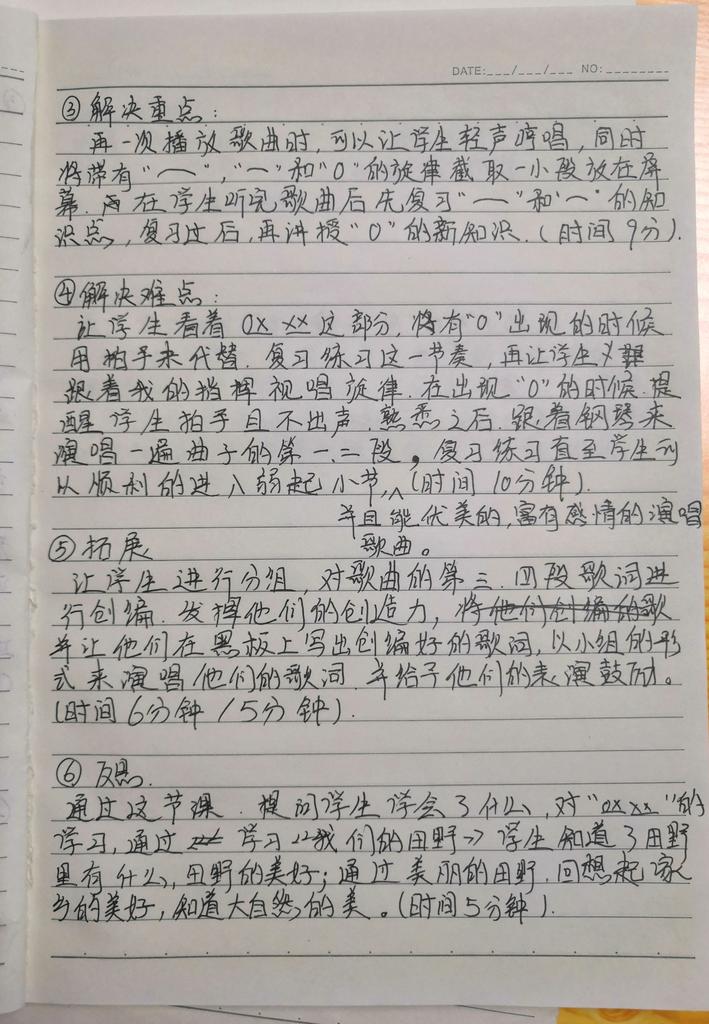 DATE:___/___/___ NO:________
③ 解决重点：
再一次播放歌曲时,可以让学生轻声哼唱,同时
将带有"⌒","⌒"和"0"的旋律截取一小段放在屏
幕.在学生听完歌曲后先复习"⌒"和"⌒"的知
识点,复习过后,再讲授"0"的新知识.(时间9分).
④解决难点：
让学生看着 0x xx 这部分,将有"0"出现的时候
用拍手来代替.复习练习这一节奏,再让学生
跟着我的指挥视唱旋律.在出现"0"的时候.提
醒学生拍手且不出声.熟悉之后.跟着钢琴来
演唱一遍曲子的第一.二段。复习练习直至学生可
以顺利的进入弱起小节,(时间10分钟).
并且能优美的,富有感情的演唱
歌曲。
⑤拓展
让学生进行分组,对歌曲的第三.四段歌词进
行创编.发挥他们的创造力,将他们创编的歌
并让他们在黑板上写出创编好的歌词,以小组的形
式来演唱他们的歌词.并给予他们的表演鼓励。
(时间6分钟/5分钟).
⑥反思.
通过这节课.提问学生学会了什么,对"0x xx"的
学习,通过学习《我们的田野》学生知道了田野
里有什么,田野的美好;通过美丽的田野.回想起家
乡的美好,知道大自然的美。(时间5分钟).